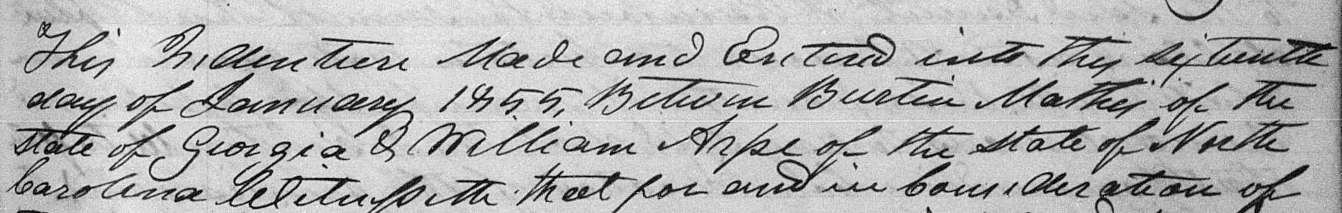 This Indenture Made and Entered into this sixteenth
day of January 1855, Betwen Burtin Mathis of the
State of Georgia & William Arpe of the state of North
Carolina Witnesseth that for and in Consideration of